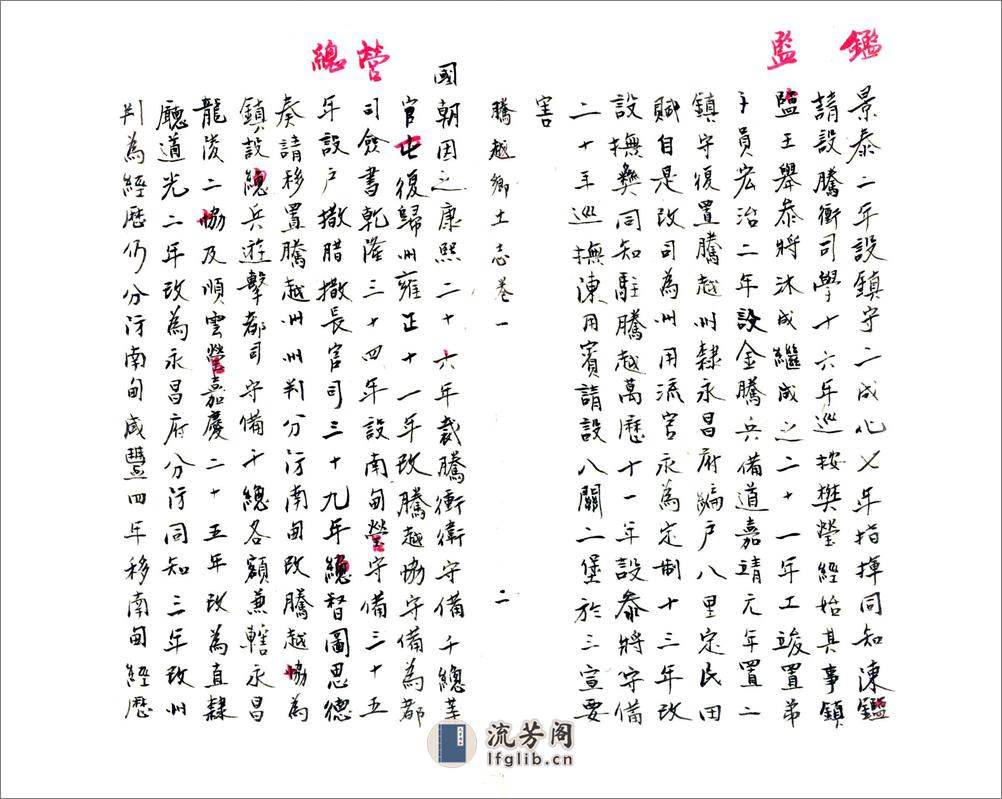 鑑
監
景泰二年設鎮守二成化七年指揮同知陳鑑
請設騰衝司學十六年巡按樊瑩經始其事鎮
監王舉叅將沐成繼成之二十一年工竣置弟
子員宏治二年設金騰兵備道嘉靖元年置二
鎮守復置騰越州隸永昌府編戶八里定民田
賦自是改司為州用流官永為定制十三年改
設撫彝同知駐騰越萬歷十一年設叅將守備
二十年巡撫陳用賓請設八關二堡於三宣要
害
騰越鄉土志卷一 二
營
總
國朝因之康熙二十六年裁騰衝衛守備千總革
官屯復歸州雍正十一年改騰越協守備為都
司僉書乾隆三十四年設南甸營守備三十五
年設戶撒腊撒長官司三十九年總督圖思德
奏請移置騰越州州判分汛南甸改騰越協為
鎮設總兵遊擊都司守備千總各額兼轄永昌
龍陵二協及順雲營嘉慶二十五年改為直隸
廳道光二年改為永昌府分汛同知三年改州
判為經歷仍分汛南甸咸豐四年移南甸經歷
流芳阁
lfglib.cn